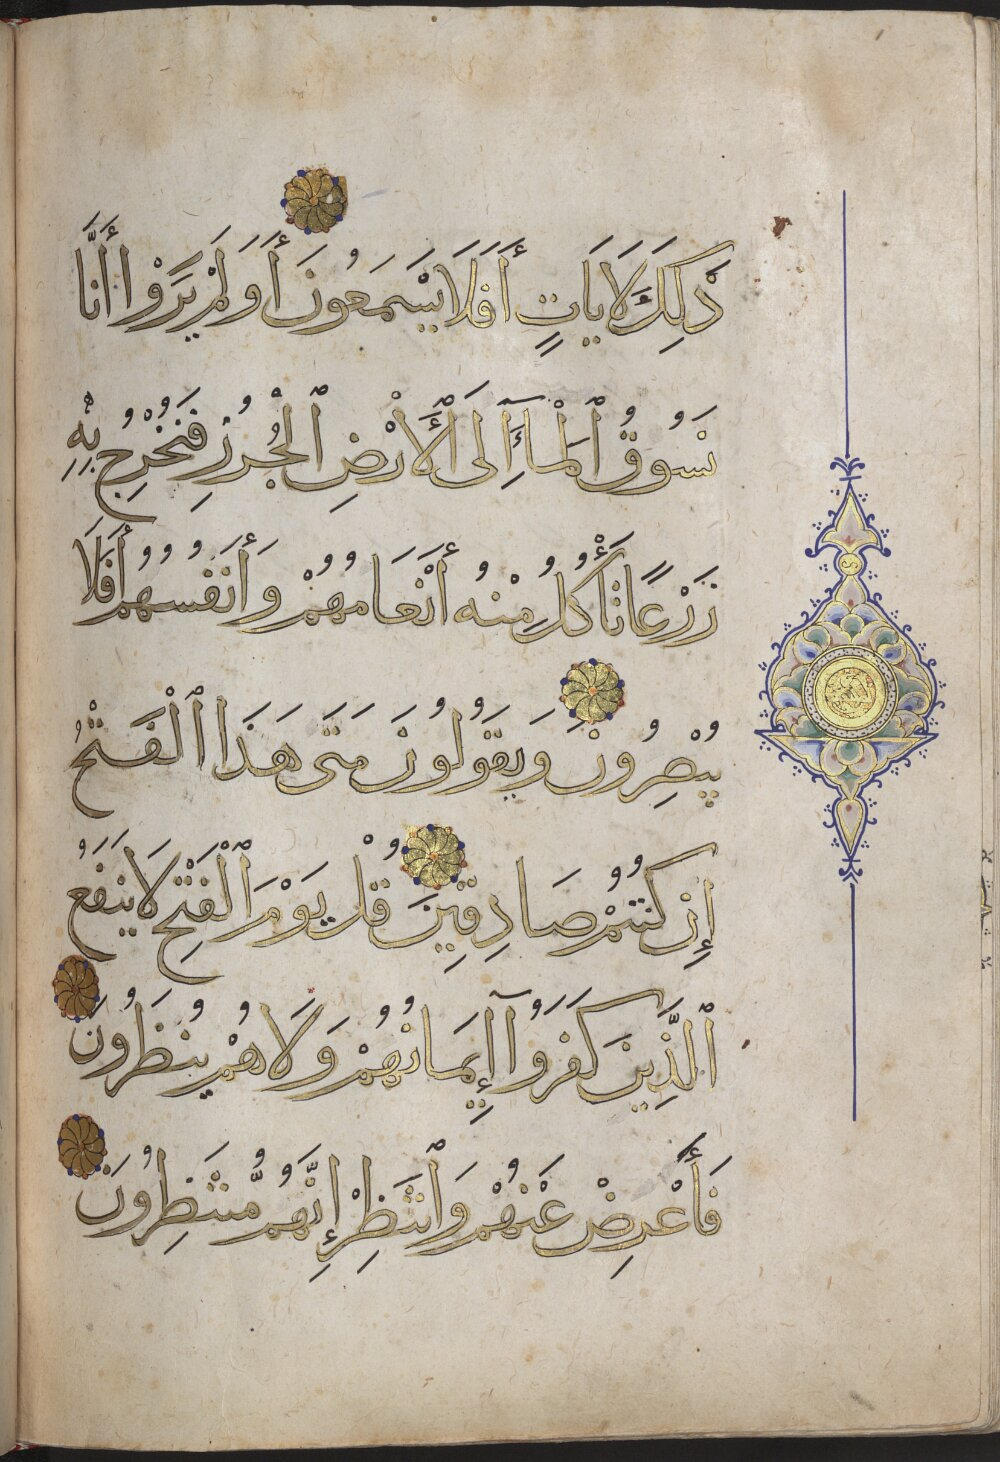 ذَٰلِكَ لَآيَاتٍ أَفَلَا يَسْمَعُونَ أَوَلَمْ يَرَوْا أَنَّا
نَسُوقُ ٱلْمَآءَ إِلَى ٱلْأَرْضِ ٱلْجُرُزِ فَنُخْرِجُ بِهِ
زَرْعًا تَأْكُلُ مِنْهُ أَنْعَامُهُمْ وَأَنفُسُهُمْ أَفَلَا
يُبْصِرُونَ وَيَقُولُونَ مَتَى هَذَا ٱلْفَتْحُ
إِن كُنتُمْ صَادِقِينَ قُلْ يَوْمَ ٱلْفَتْحِ لَا يَنفَعُ
ٱلَّذِينَ كَفَرُوٓا إِيمَانُهُمْ وَلَا هُمْ يُنظَرُونَ
فَأَعْرِضْ عَنْهُمْ وَٱنتَظِرْ إِنَّهُم مُّنتَظِرُونَ